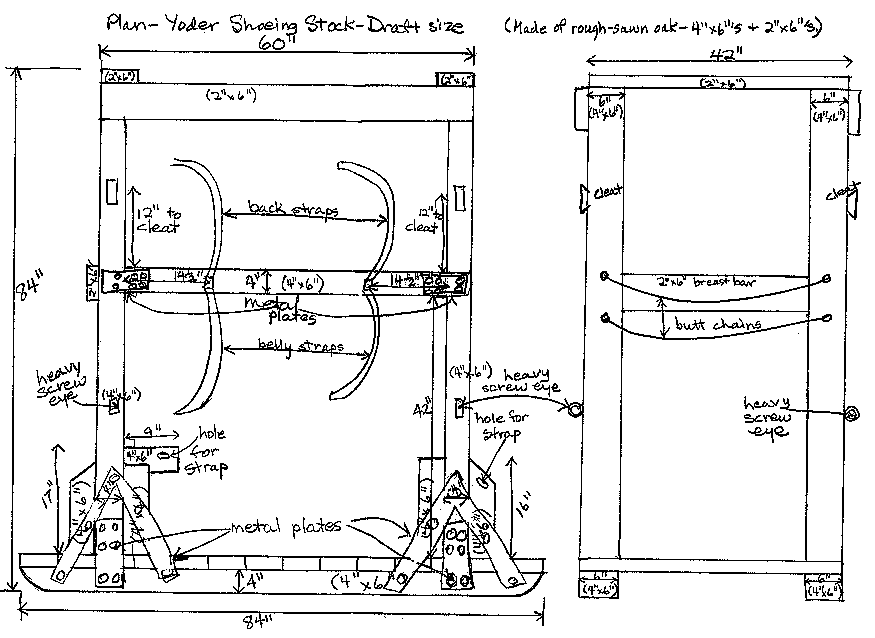 Plan - Yoder Shoeing Stock - Draft size
(Made of rough-sawn oak - 4"x6"'s + 2"x6"'s)
60"
42"
(2"x6")
(2"x6")
(2"x6")
(2"x6")
6"
(4"x6")
6"
(4"x6")
cleat
cleat
12" to
cleat
back straps
12" to
cleat
84"
2"x6"
14½"
4"
(4"x6")
14½"
metal
plates
2"x6" breast bar
butt chains
belly straps
heavy
screw
eye
(4"x6")
(4"x6")
heavy
screw eye
42"
hole for
strap
heavy
screw
eye
9"
4"x6"
hole
for
strap
17"
(4"x6")
(4"x6")
(4"x6")
(4"x6")
16"
metal plates
4"
(4"x6"
84"
6"
(4"x6")
6"
(4"x6")